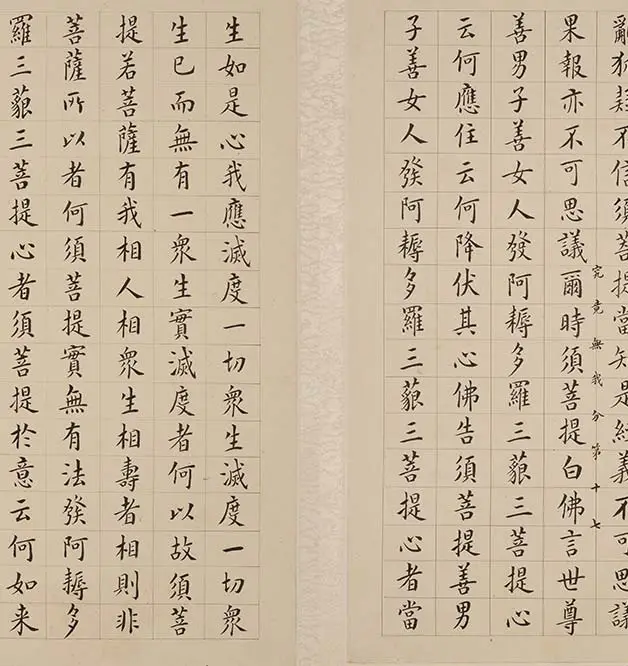 亂狐疑不信須菩提當知是經義不可思議
究竟無我分第十七
果報亦不可思議爾時須菩提白佛言世尊
善男子善女人發阿耨多羅三藐三菩提心
云何應住云何降伏其心佛告須菩提善男
子善女人發阿耨多羅三藐三菩提心者當
生如是心我應滅度一切衆生滅度一切衆
生已而無有一衆生實滅度者何以故須菩
提若菩薩有我相人相衆生相壽者相則非
菩薩所以者何須菩提實無有法發阿耨多
羅三藐三菩提心者須菩提於意云何如来